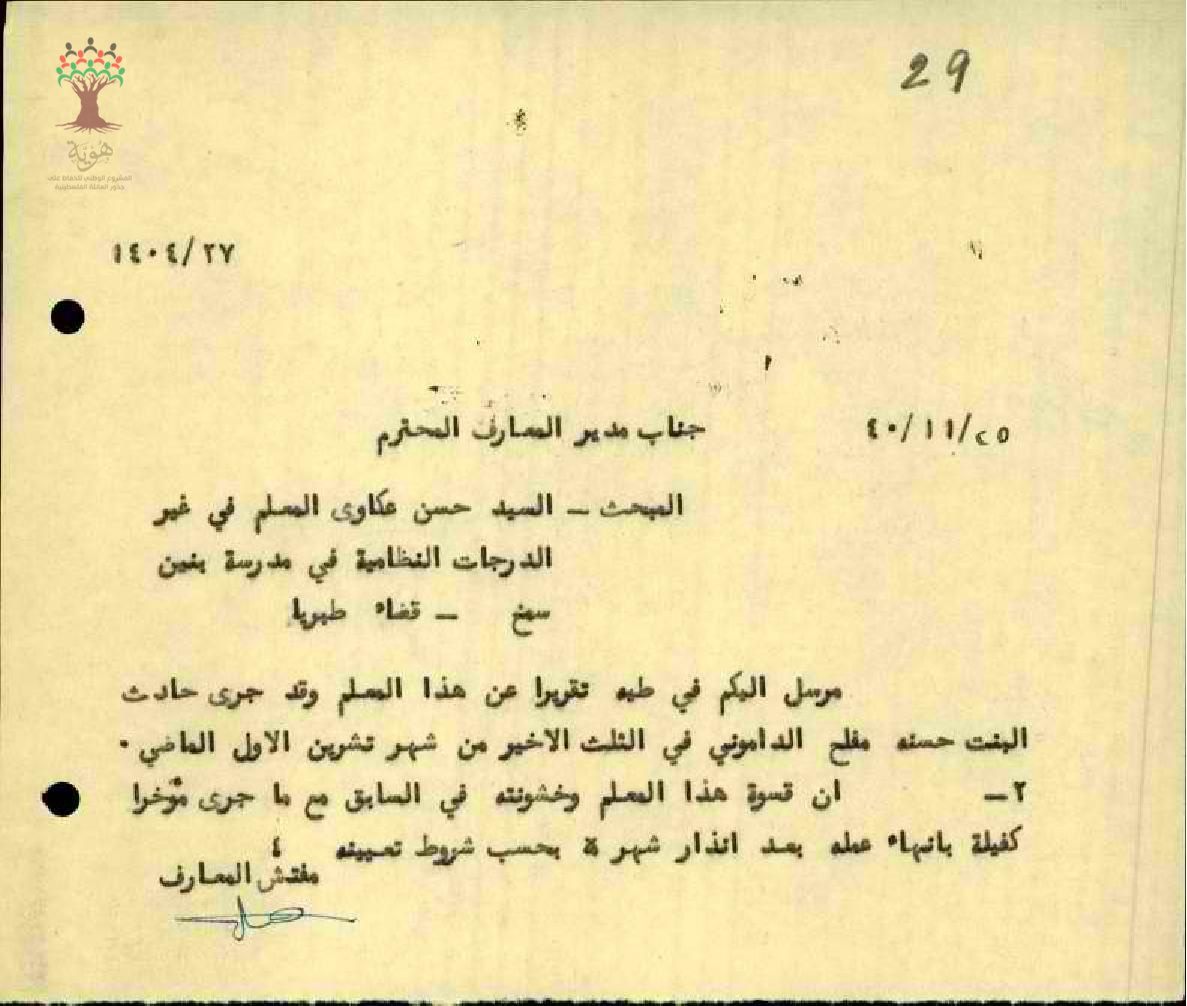 29
هوية
المشروع الوطني للحفاظ على
جذور العائلة الفلسطينية
١٤٠٤/٢٧
٤٠/١١/٢٥
جناب مدير المعارف المحترم
المبحث ـ السيد حسن عكاوى المعلم في غير
الدرجات النظامية في مدرسة بنين
سمخ ـ قضاء طبريا
مرسل اليكم في طيه تقريرا عن هذا المعلم وقد جرى حادث
البنت حسنه مفلح الداموني في الثلث الاخير من شهر تشرين الاول الماضي ٠
٢ـ ان قسوة هذا المعلم وخشونته في السابق مع ما جرى مؤخرا
كفيلة بانهاء عمله بعد انذار شهر ة بحسب شروط تعيينه ٤
مفتش المعارف